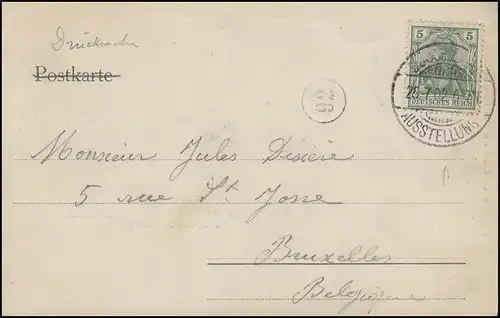 Drucksache
Postkarte
5 5
DEUTSCHES REICH
28.7.02
AUSSTELLUNG
92
Monsieur Jules Dixière
5 rue St Josse
Bruxelles
Belgique